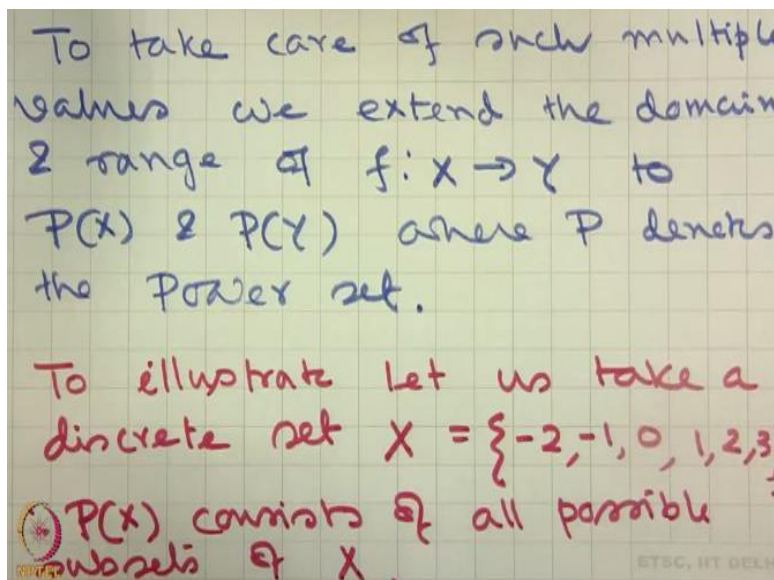 To take care of such multiple
values we extend the domain
& range of f: X → Y to
P(X) & P(Y) where P denotes
the Power set.
To illustrate Let us take a
discrete set X = {-2, -1, 0, 1, 2, 3
P(X) consists of all possible
subsets of X.
NPTEL
ETSC, IIT DELHI